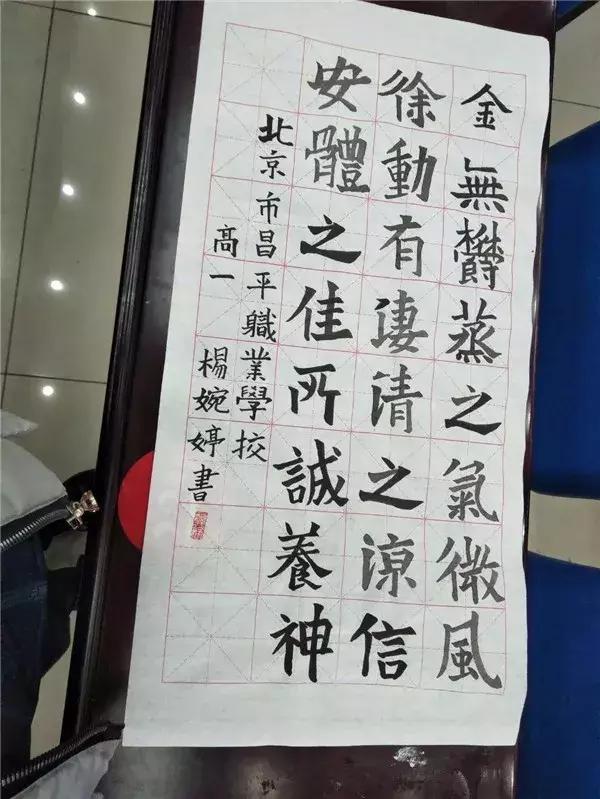 金無欝蒸之氣微風
徐動有淒清之涼信
安體之佳所誠養神
北京市昌平職業學校
高一 楊婉婷書